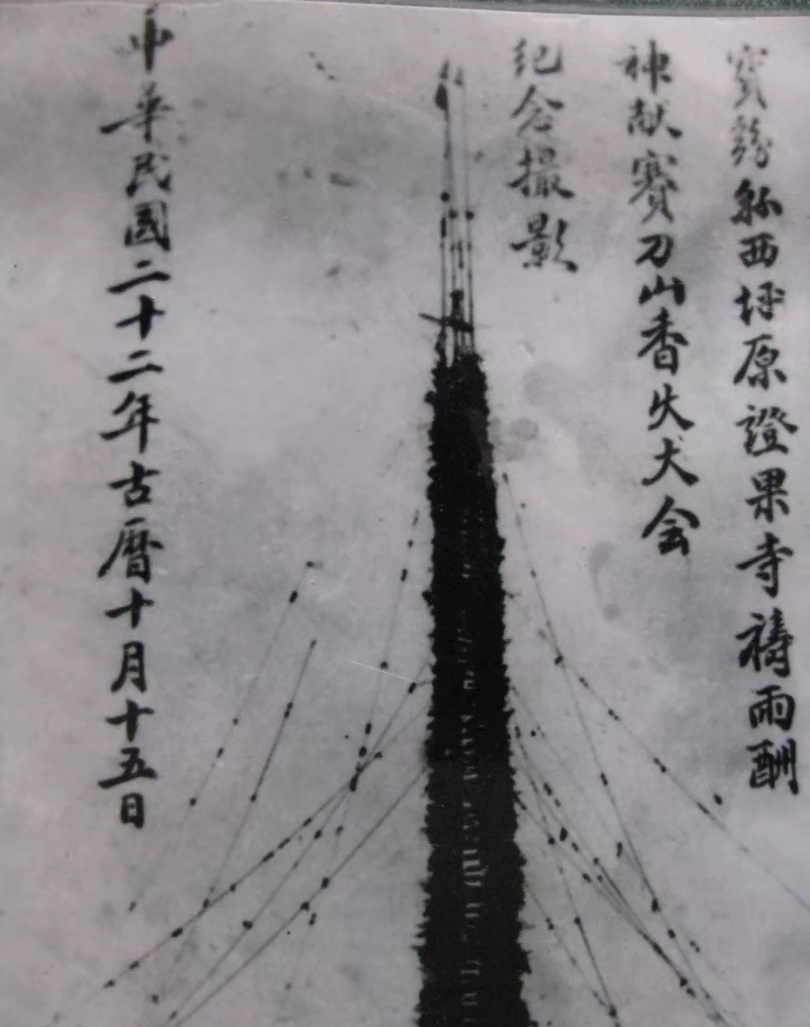 寳鷄縣西坪原證果寺禱雨酬
神献賽刀山香火大会
紀念撮影
中華民國二十二年古曆十月十五日